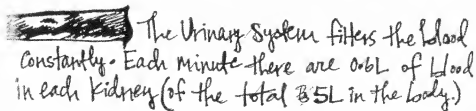 The Urinary System filters the blood
constantly. Each minute there are 0.6L of blood
in each kidney (of the total 5L in the body.)